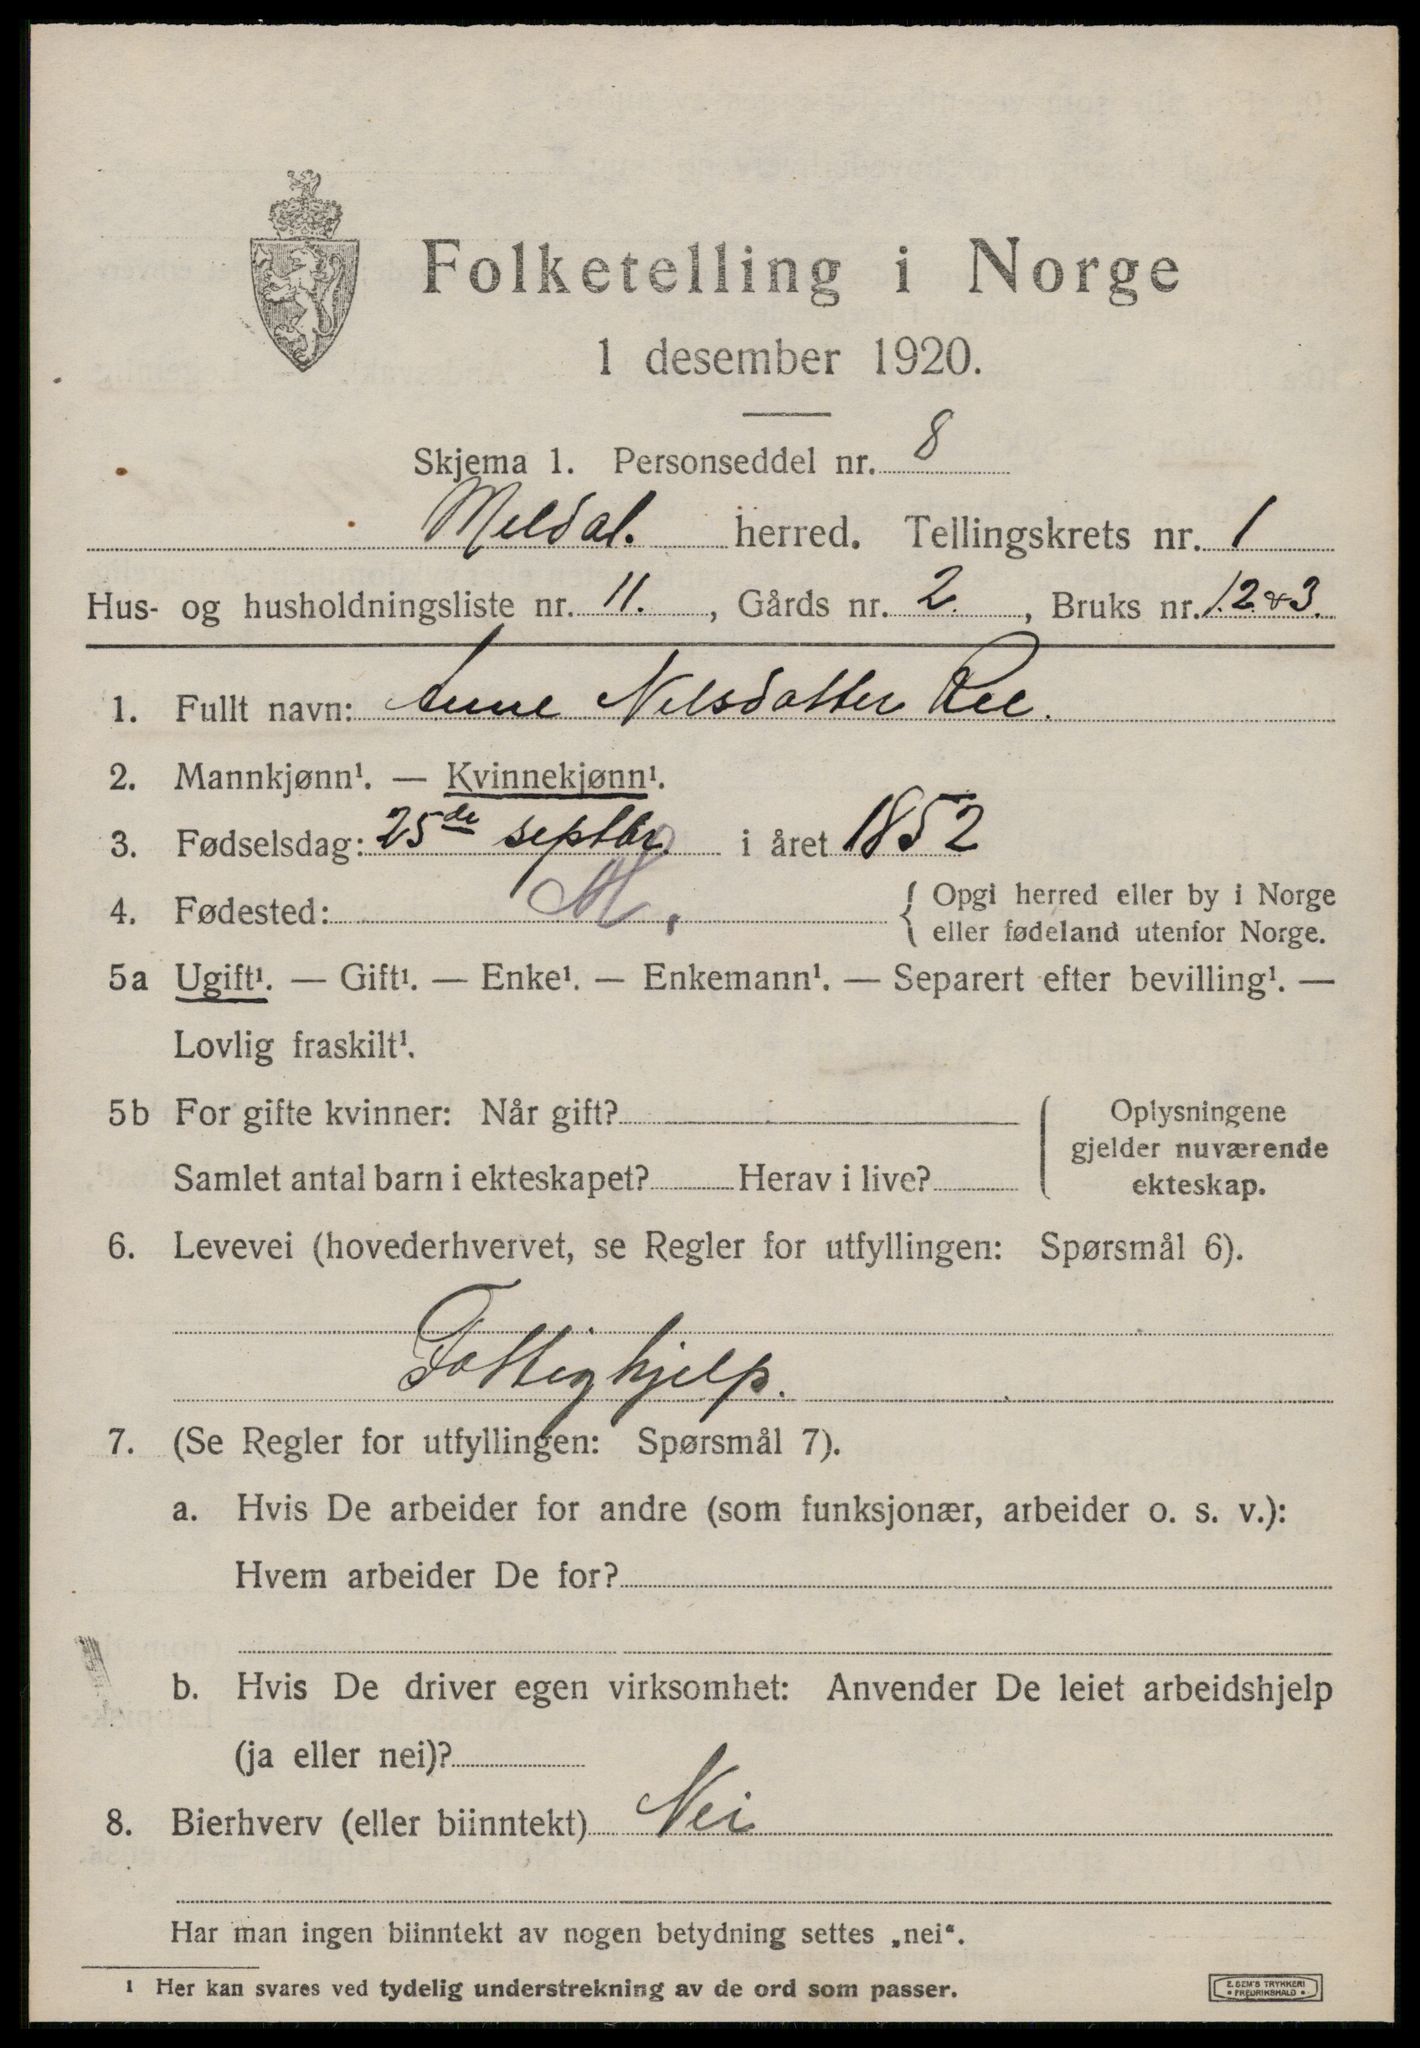 Folketelling i Norge
1 desember 1920.
Skjema 1. Personseddel nr. 8
Meldal. herred. Tellingskrets nr. 1
Hus- og husholdningsliste nr. 11. , Gårds nr. 2. , Bruks nr. 1.2.&3.
1. Fullt navn: Anne Nilsdatter Ree.
2. Mannkjønn¹. — Kvinnekjønn¹.
3. Fødselsdag: 25de septbr. i året 1852
4. Fødested: M. { Opgi herred eller by i Norge
eller fødeland utenfor Norge.
5a Ugift¹. — Gift¹. — Enke¹. — Enkemann¹. — Separert efter bevilling¹. —
Lovlig fraskilt¹.
5b For gifte kvinner: Når gift? { Oplysningene
gjelder nuværende
Samlet antal barn i ekteskapet? Herav i live? ekteskap.
6. Levevei (hovederhvervet, se Regler for utfyllingen: Spørsmål 6).
Fattighjelp.
7. (Se Regler for utfyllingen: Spørsmål 7).
a. Hvis De arbeider for andre (som funksjonær, arbeider o. s. v.):
Hvem arbeider De for?
b. Hvis De driver egen virksomhet: Anvender De leiet arbeidshjelp
(ja eller nei)?
8. Bierhverv (eller biinntekt) Nei
Har man ingen biinntekt av nogen betydning settes „nei“.
¹ Her kan svares ved tydelig understrekning av de ord som passer.
E. SEM'S TRYKKERI
• FREDRIKSHALD •